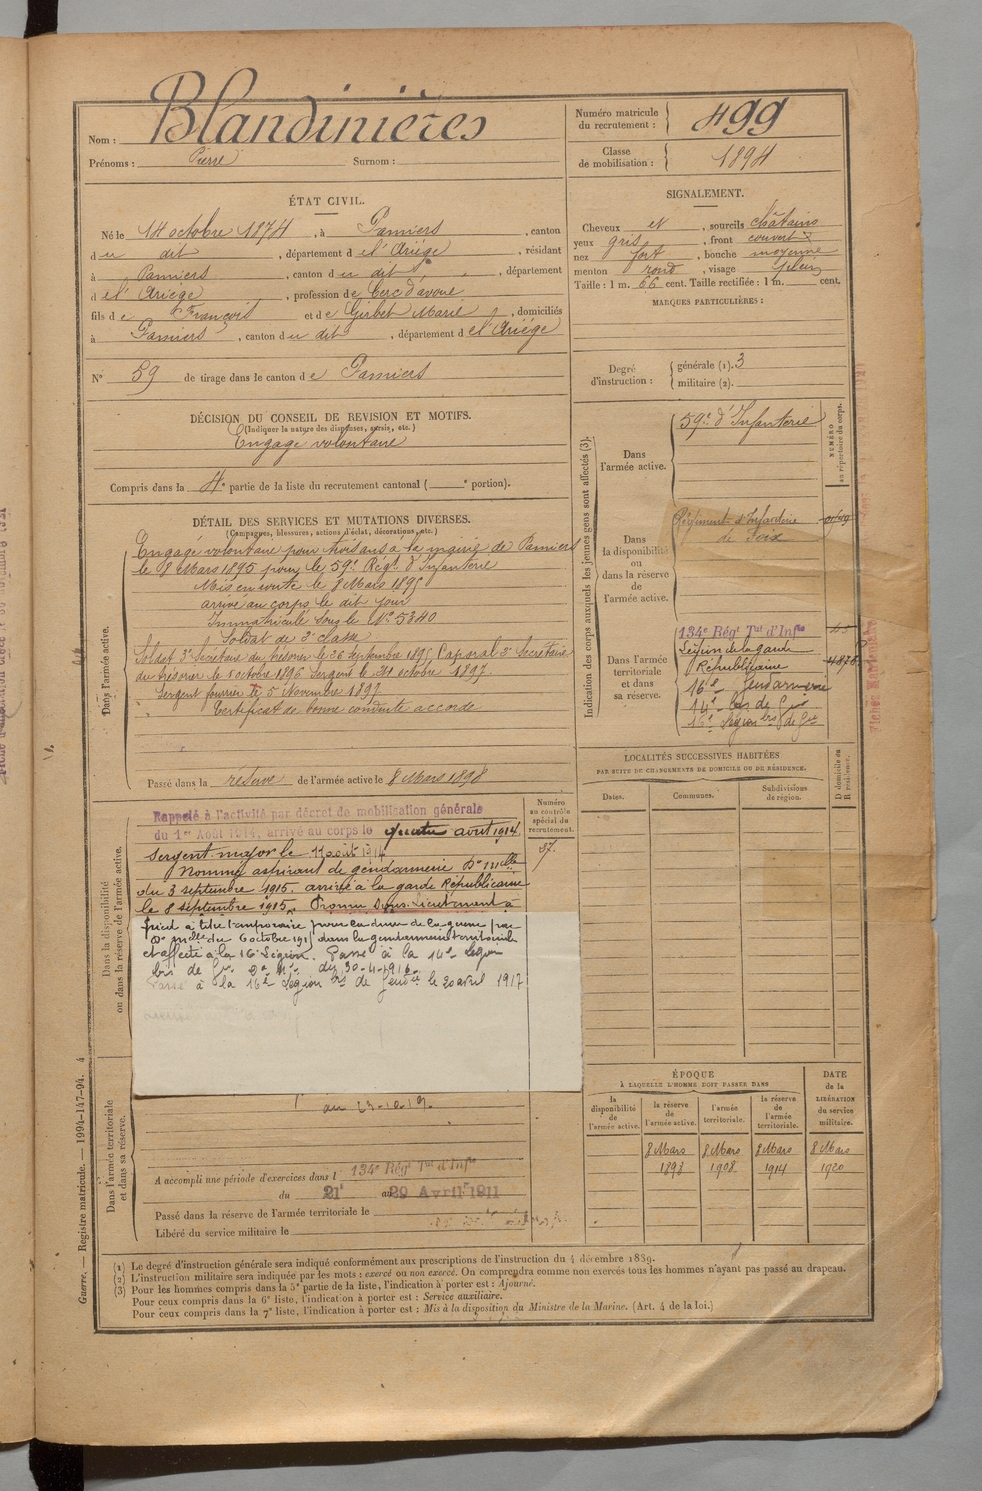 Nom : Blandinières
Prénoms : Pierre Surnom :
Numéro matricule du recrutement : 499
Classe de mobilisation : 1894
ÉTAT CIVIL.
Né le 14 octobre 1874, à Pamiers, canton
du dit, département de l'Ariège, résidant
à Pamiers, canton du dit, département
de l'Ariège, profession de Clerc d'avoué
fils de François et de Girbet Marie, domiciliés
à Pamiers, canton du dit, département de l'Ariège
N° 59 de tirage dans le canton de Pamiers
SIGNALEMENT.
Cheveux et, sourcils châtains
yeux gris, front couvert
nez fort, bouche moyenne
menton rond, visage plein
Taille : 1 m. 66 cent. Taille rectifiée : 1 m. cent.
MARQUES PARTICULIÈRES :
Degré d'instruction : générale (1). 3
militaire (2).
DÉCISION DU CONSEIL DE REVISION ET MOTIFS.
(Indiquer la nature des dispenses, sursis, etc.)
Engagé volontaire
Compris dans la 4e partie de la liste du recrutement cantonal ( e portion).
DÉTAIL DES SERVICES ET MUTATIONS DIVERSES.
(Campagnes, blessures, actions d'éclat, décorations, etc.)
Dans l'armée active.
Engagé volontaire pour trois ans à la mairie de Pamiers
le 8 Mars 1895 pour le 59e Régt d'Infanterie
Mis en route le 8 Mars 1895
arrivé au corps le dit jour
Immatriculé sous le No 5340
Soldat de 2e classe
Soldat 3e Secrétaire du trésorier le 26 septembre 1895 Caporal 2e Secrétaire
du trésorier le 1 octobre 1896 Sergent le 31 octobre 1897
Sergent fourrier le 5 Novembre 1897
Certificat de bonne conduite accordé
Passé dans la réserve de l'armée active le 8 Mars 1898
Dans la disponibilité ou dans la réserve de l'armée active.
Numéro au contrôle spécial du recrutement.
57.
Rappelé à l'activité par décret de mobilisation générale
du 1er Août 1914, arrivé au corps le quatre août 1914.
Sergent-major le 11 août 1914
Nommé aspirant de gendarmerie Don mlle
du 3 septembre 1915. arrivé à la garde Républicaine
le 8 septembre 1915. Promu Sous-Lieutenant à
pied à titre temporaire pour la durée de la guerre par
Don mlle du 6 octobre 1915 dans la gendarmerie territoriale
et affecté à la 16e Légion. Passé à la 14e Légion
bis de Gie du 30-4-1916
Passé à la 16e Légion bis de Gendie le 20 avril 1917
Dans l'armée territoriale et dans sa réserve.
au 23.10.19.
A accompli une période d'exercices dans l 134e Régt Tal d'Infie
du 21 au 29 Avril 1911
Passé dans la réserve de l'armée territoriale le
Libéré du service militaire le
Indication des corps auxquels les jeunes gens sont affectés (3).
NUMÉRO au répertoire du corps.
Dans l'armée active.
59e d'Infanterie
Dans la disponibilité ou dans la réserve de l'armée active.
Régiment d'Infanterie
de Foix
Dans l'armée territoriale et dans sa réserve.
134e Régt Tal d'Infie
Légion de la garde
Républicaine
16e Gendarmerie
14e bis de Gie
16e Légion bis de Gie
LOCALITÉS SUCCESSIVES HABITÉES
PAR SUITE DE CHANGEMENTS DE DOMICILE OU DE RÉSIDENCE.
Dates. Communes. Subdivisions de région. D domicile ou R résidence.
ÉPOQUE
À LAQUELLE L'HOMME DOIT PASSER DANS
DATE de la LIBÉRATION du service militaire.
la disponibilité de l'armée active. la réserve de l'armée active. l'armée territoriale. la réserve de l'armée territoriale.
8 Mars 8 Mars 8 Mars 8 Mars
1898 1908 1914 1920
(1) Le degré d'instruction générale sera indiqué conformément aux prescriptions de l'instruction du 4 décembre 1889.
(2) L'instruction militaire sera indiquée par les mots : exercé ou non exercé. On comprendra comme non exercés tous les hommes n'ayant pas passé au drapeau.
(3) Pour les hommes compris dans la 5e partie de la liste, l'indication à porter est : Ajourné.
Pour ceux compris dans la 6e liste, l'indication à porter est : Service auxiliaire.
Pour ceux compris dans la 7e liste, l'indication à porter est : Mis à la disposition du Ministre de la Marine. (Art. 4 de la loi.)
Guerre. — Registre matricule. — 1994-147-94. 4